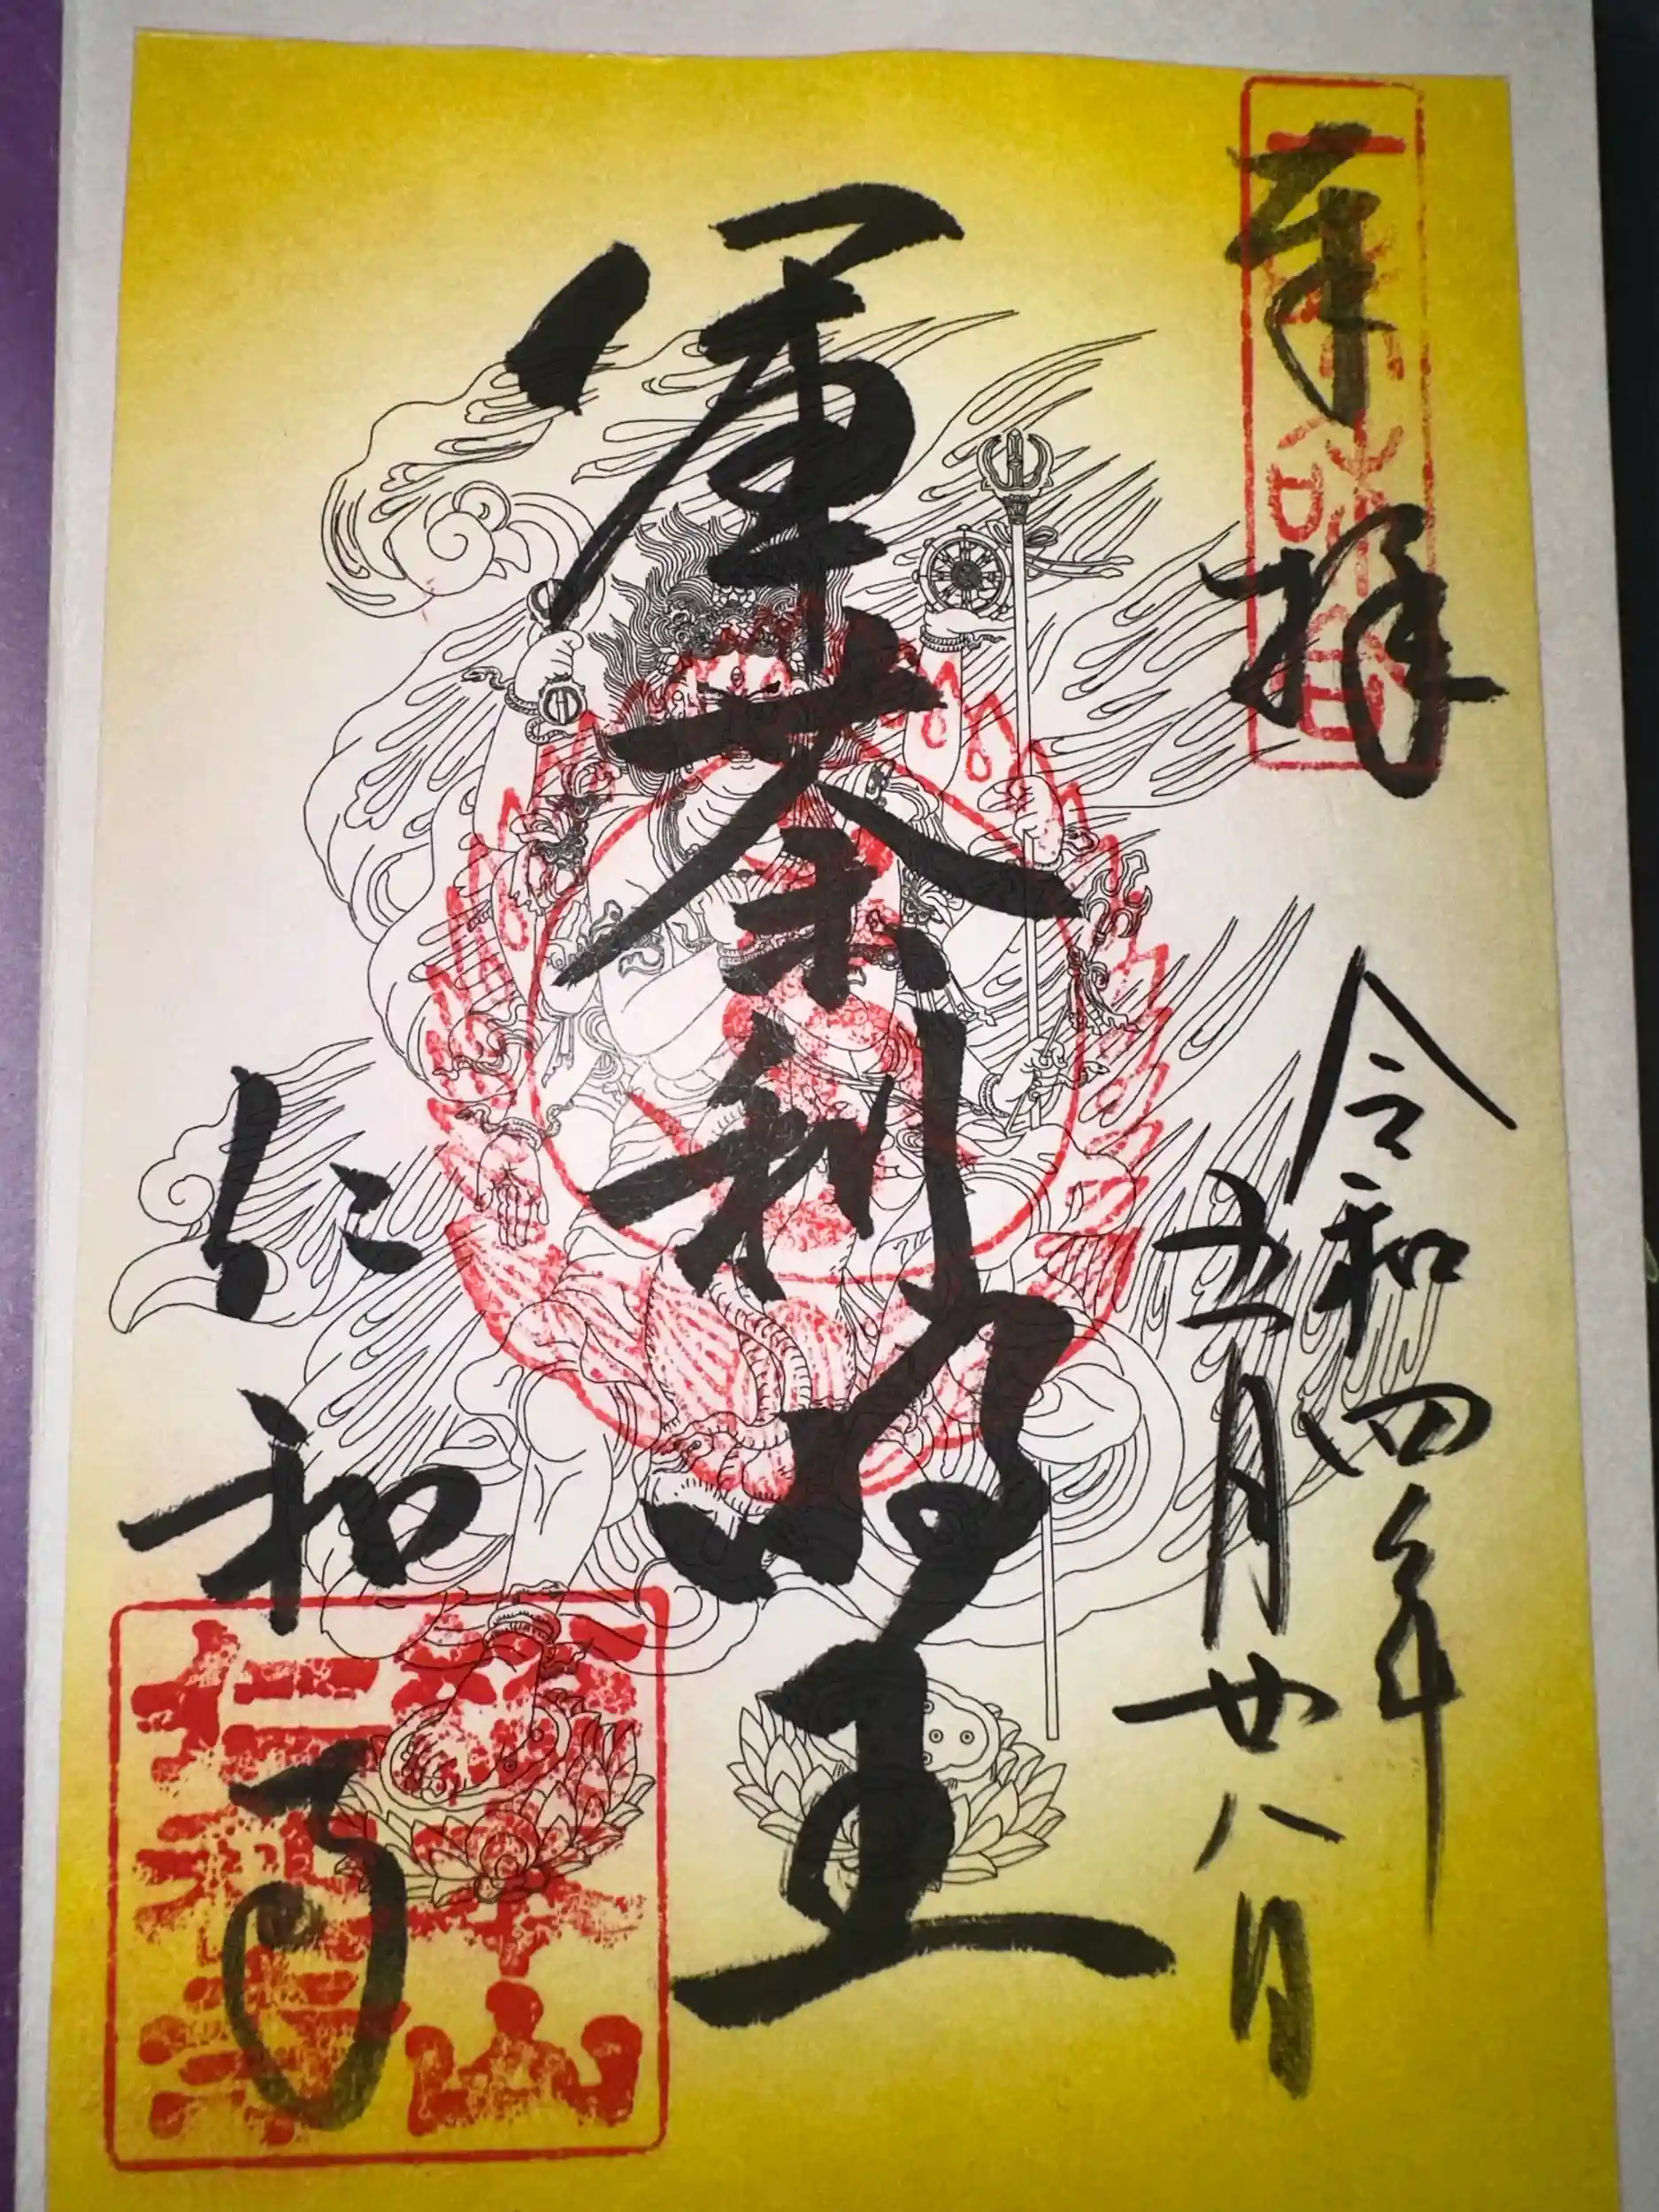 奉拝
令和四年
五月廿八日
軍荼利明王
仁和寺